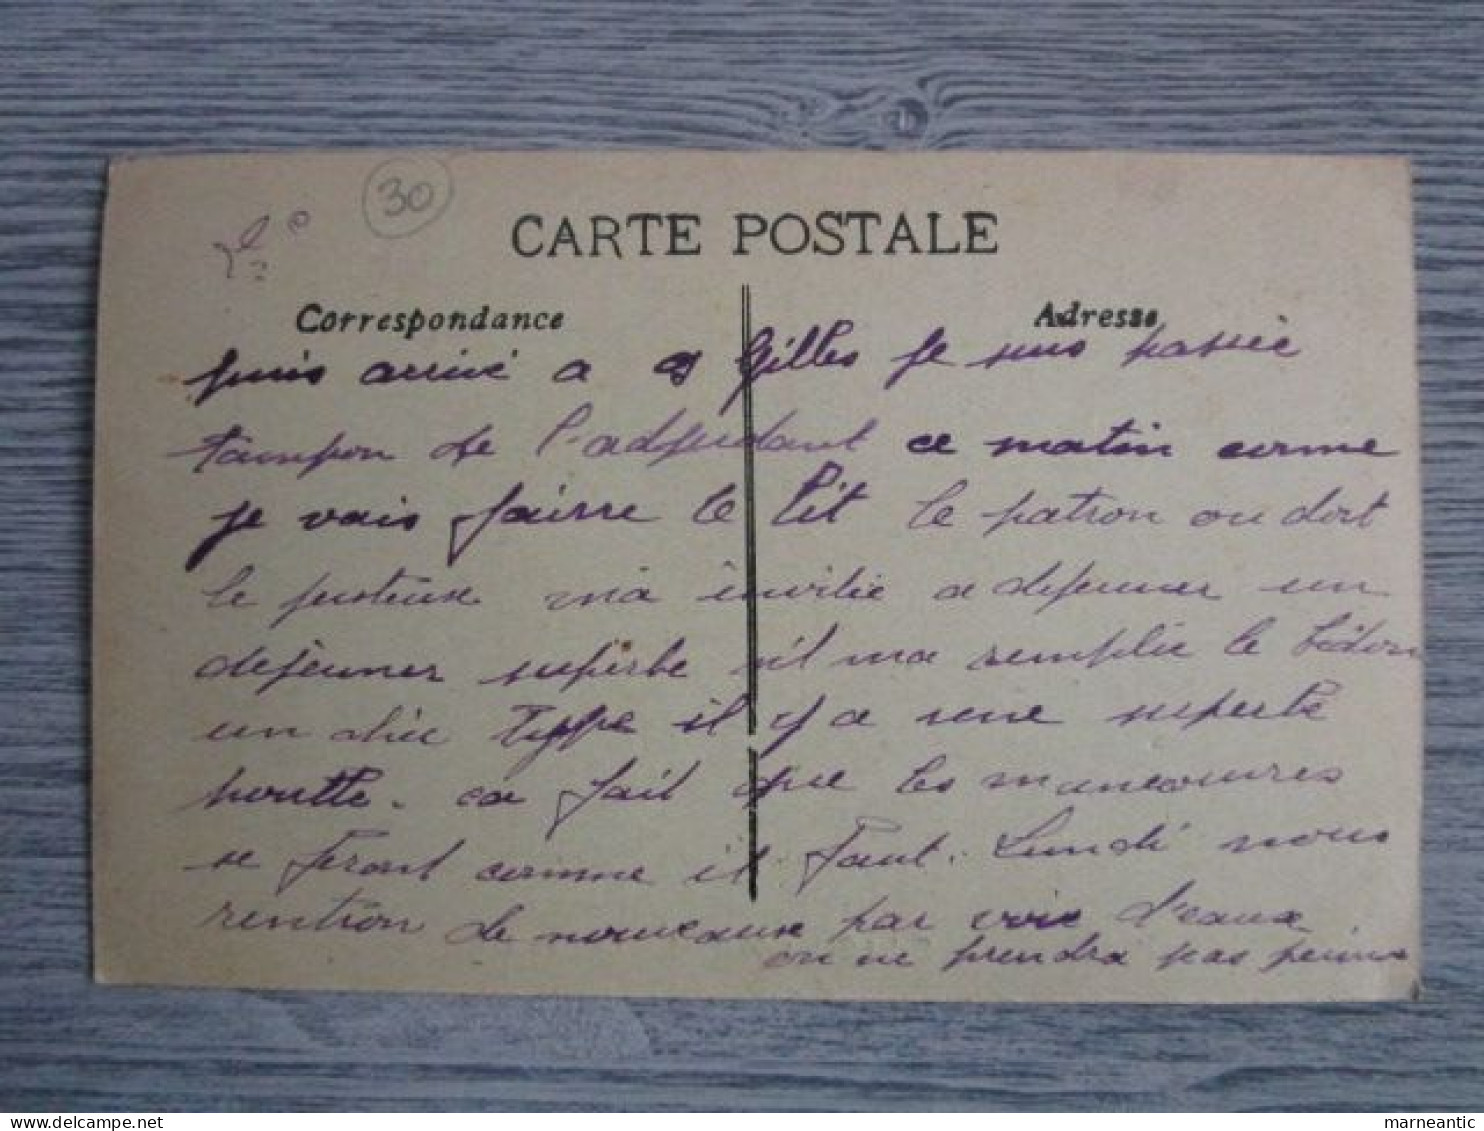 30
CARTE POSTALE
Correspondance
Adresse
suis arrivé a Gilles Je suis passée
tampon de l'adjudant ce matin comme
je vais fairre le Pit le patron ou dort
le ma invitée a dejeuner un
dejeuner superbe il ma remplie le bidon
un chic Type il y a une superbe
par voie d'eaux
goutte. ca fait que les maneouvres
se feront comme il faut. Lundi nous
rention de nouveaux par voie d'eaux
on ne prendra pas
marneantic